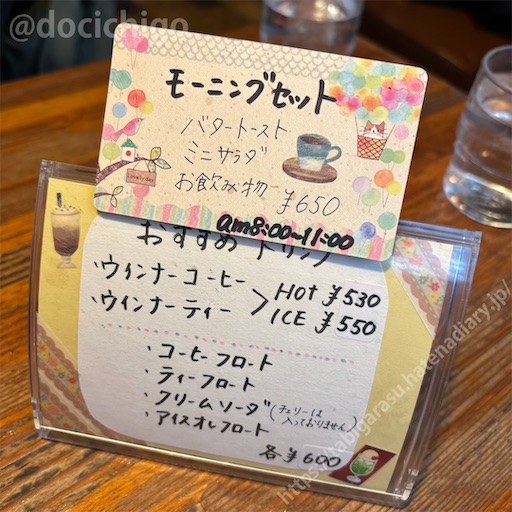 @docichigo
モーニングセット
バタートースト
ミニサラダ
お飲み物 ¥650
Lovely day
am8:00~11:00
おすすめドリンク
・ウインナーコーヒー
・ウインナーティー > HOT ¥530
ICE ¥550
・コーヒーフロート
・ティーフロート
・クリームソーダ(チェリーは入っておりません)
・アイスオレフロート
各¥600
https://tabigarasu.hatenadiary.jp/